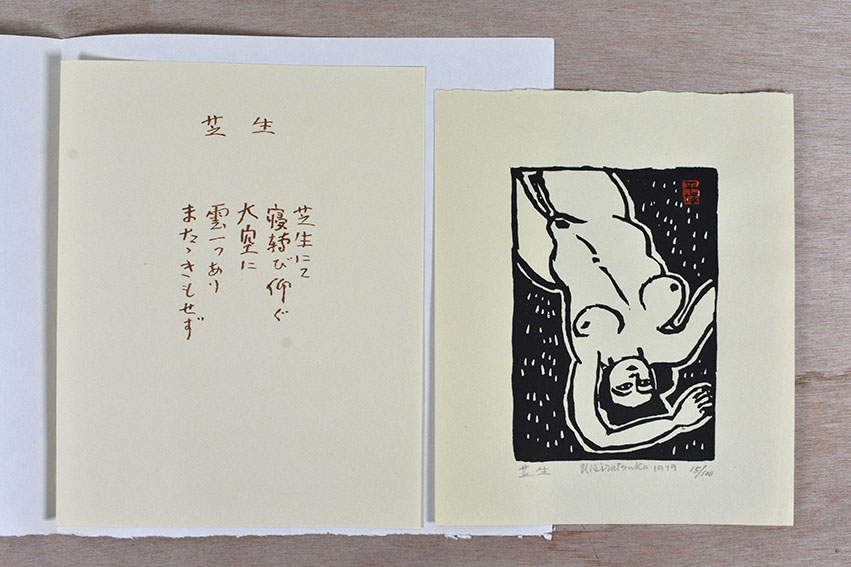 芝生
芝生にて
寝轉び仰ぐ
大空に
雲一つあり
またゝきもせず
芝生 Un Hiratsuka 1979 15/120